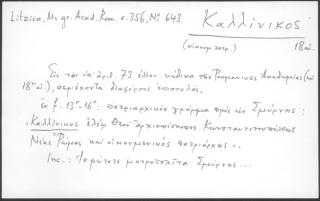 Litzica, Ms gr. Acad. Rom. σ. 356, Nº 643
Καλλίνικος
(οἰκουμ. πατρ.) 18 αἰ.
Εἰς τὸν ὑπ' ἀριθ. 73 ἑλλην. κώδικα τῆς Ρουμανικῆς Ἀκαδημίας (τοῦ
18 αἰ.), περιέχοντα διαφόρους ἐπιστολάς,
ἐν f. 13ʳ-16ʳ: πατριαρχικὸν γράμμα πρὸς τὸν Σμύρνης:
«Καλλίνικος ἐλέῳ Θεοῦ ἀρχιεπίσκοπος Κωνσταντινουπόλεως
Νέας Ῥώμης καὶ οἰκουμενικὸς πατριάρχης».
Inc.: Ἱερώτατε μητροπολῖτα Σμύρνης...